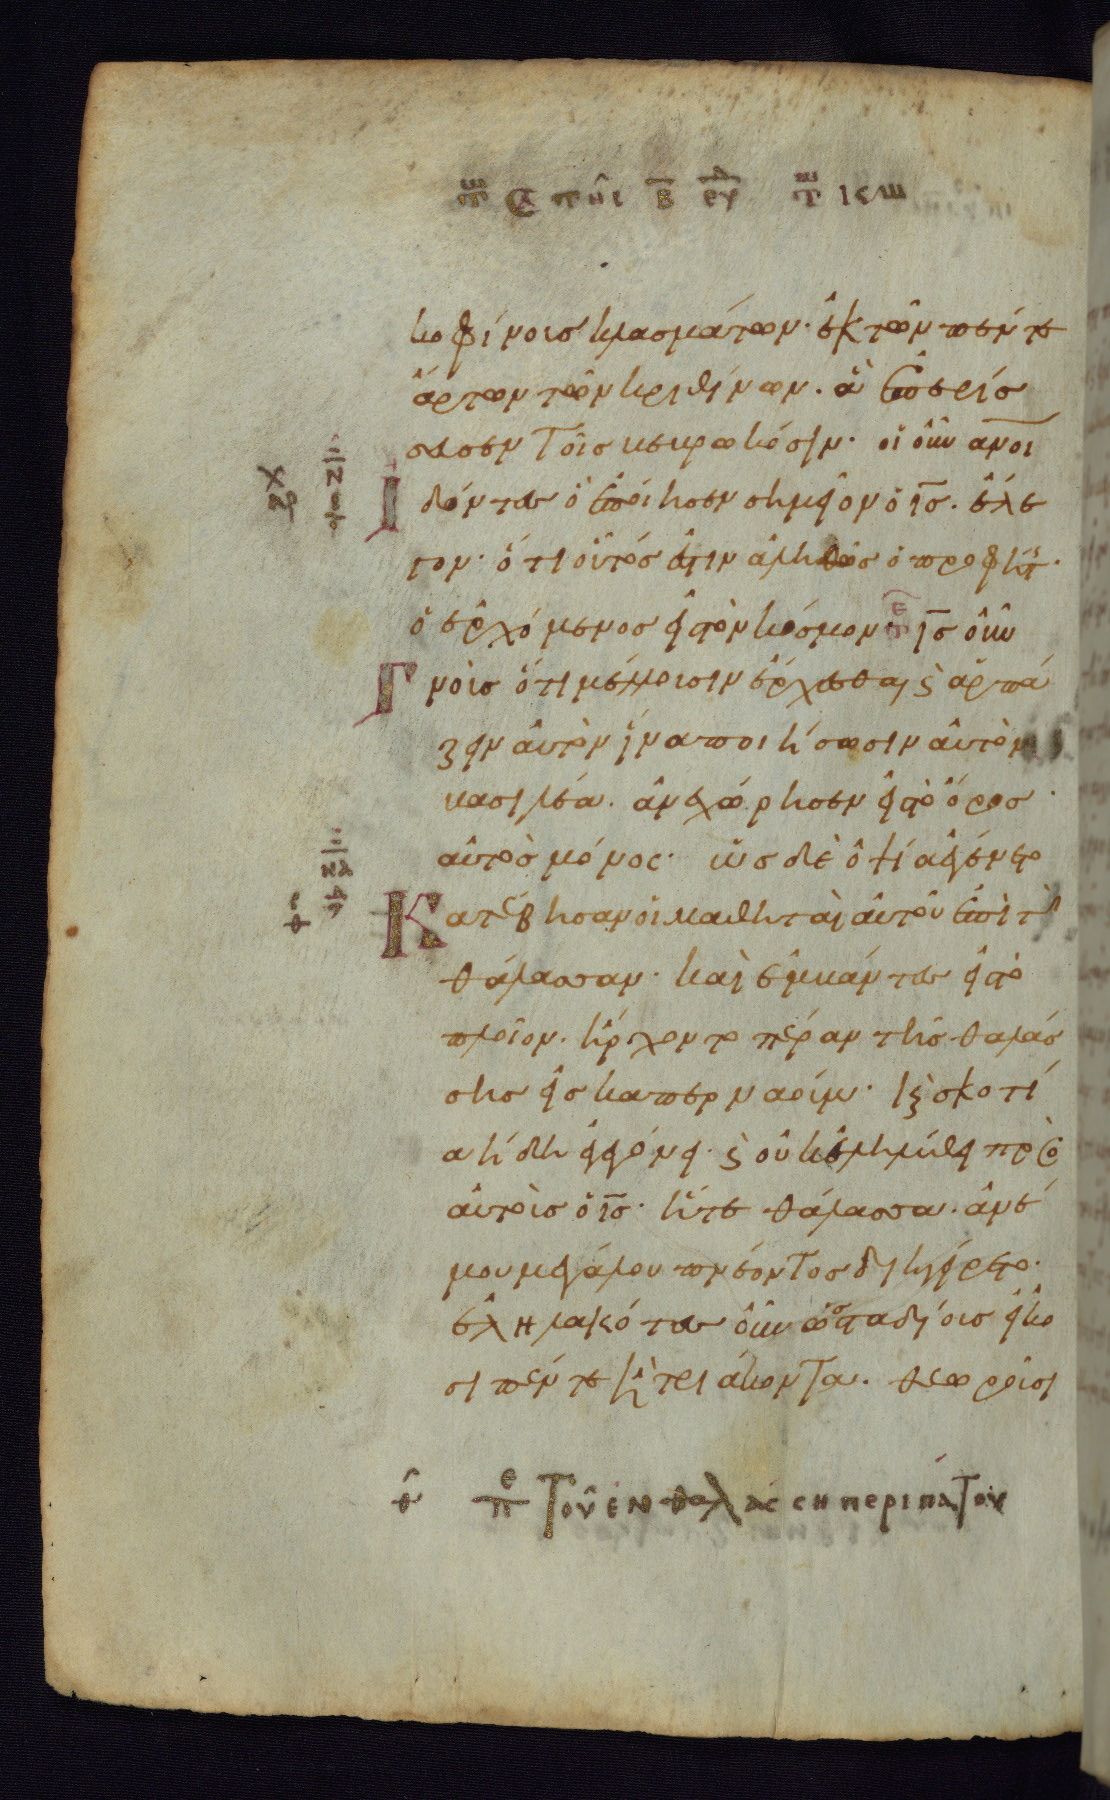 κοφίνοις κλασμάτων· ἐκ τῶν πέντε
ἄρτων τῶν κριθίνων. ἃ ἐπερίσ
σευσεν τοῖς βεβρωκόσιν· οἱ οὖν ἄνοι
ἰδόντες ὃ ἐποίησεν σημεῖον ὁ ις. ἔλε
γον· ὅτι οὗτός ἐστιν ἀληθῶς ὁ προφήτ
ὁ ἐρχόμενος εἰς τὸν κόσμον· ις οὖν
Γνοὺς ὅτι μέλλουσιν ἔρχεσθαι ϗ ἁρπά
ζειν αὐτὸν ἵνα ποιήσωσιν αὐτὸν
βασιλέα. ἀνεχώρησεν εἰς τὸ ὄρος
αὐτὸς μόνος· ὡς δὲ ὀψία ἐγένετο
Κατέβησαν οἱ μαθηταὶ αὐτοῦ ἐπὶ τὴν
θάλασσαν· καὶ ἐμβάντες εἰς τὸ
πλοῖον. ἤρχοντο πέραν τῆς θαλάσ
σης εἰς καπερναούμ· ϗ σκοτί
α ἤδη ἐγεγόνει. ϗ οὐκ ἐληλύθει πρὸς
αὐτοὺς ὁ ις· ἥτε θάλασσα. ἀνέ
μου μεγάλου πνέοντος διηγείρετο·
ἐληλακότες οὖν ὡς σταδίους εἴκο
σι πέντε ἢ τριάκοντα. θεωροῦσι
θ πε Τοῦ ἐν θαλάσσῃ περιπάτου